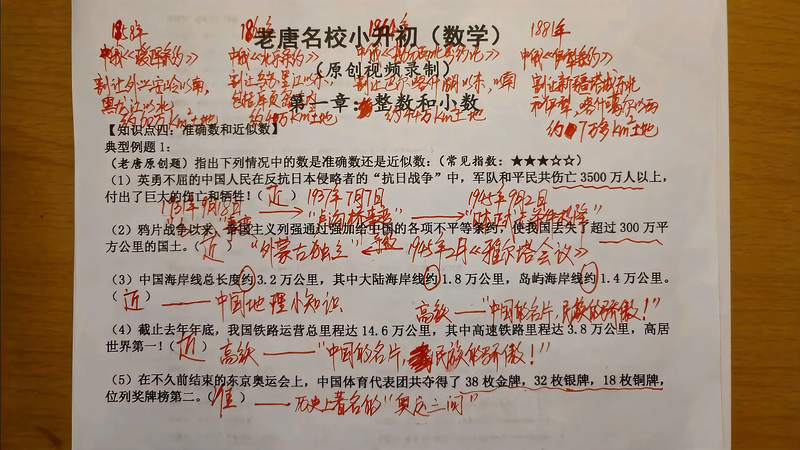 1858年 1860年 1864年 1881年
中俄《瑷珲条约》 中俄《北京条约》 中俄《勘分西北界约记》 中俄《伊犁条约》
老唐名校小升初（数学）
（原创视频录制）
第一章：整数和小数
约60万km²土地 约40万km²土地 约44万km²土地 约7万多km²土地
【知识点四：准确数和近似数】
典型例题1：
（老唐原创题）指出下列情况中的数是准确数还是近似数：（常见指数：★★★☆☆）
（1）英勇不屈的中国人民在反抗日本侵略者的“抗日战争”中，军队和平民共伤亡3500万人以上，
付出了巨大的伤亡和牺牲！（近）
1931年9月18日 1937年7月7日 1945年9月2日
“卢沟桥事变”
（2）鸦片战争以来，帝国主义列强通过强加给中国的各项不平等条约，使我国丢失了超过300万平
方公里的国土。（近） “外蒙古独立” 1945年2月《雅尔塔会议》
（3）中国海岸线总长度约3.2万公里，其中大陆海岸线约1.8万公里，岛屿海岸线约1.4万公里。
（近） 中国地理小知识 高铁——“中国的名片，民族的骄傲！”
（4）截止去年年底，我国铁路运营总里程达14.6万公里，其中高速铁路里程达3.8万公里，高居
世界第一！（近） 高铁——“中国的名片，民族的骄傲！”
（5）在不久前结束的东京奥运会上，中国体育代表团共夺得了38枚金牌，32枚银牌，18枚铜牌，
位列奖牌榜第二。（准）——历史上著名的“奥运三问”